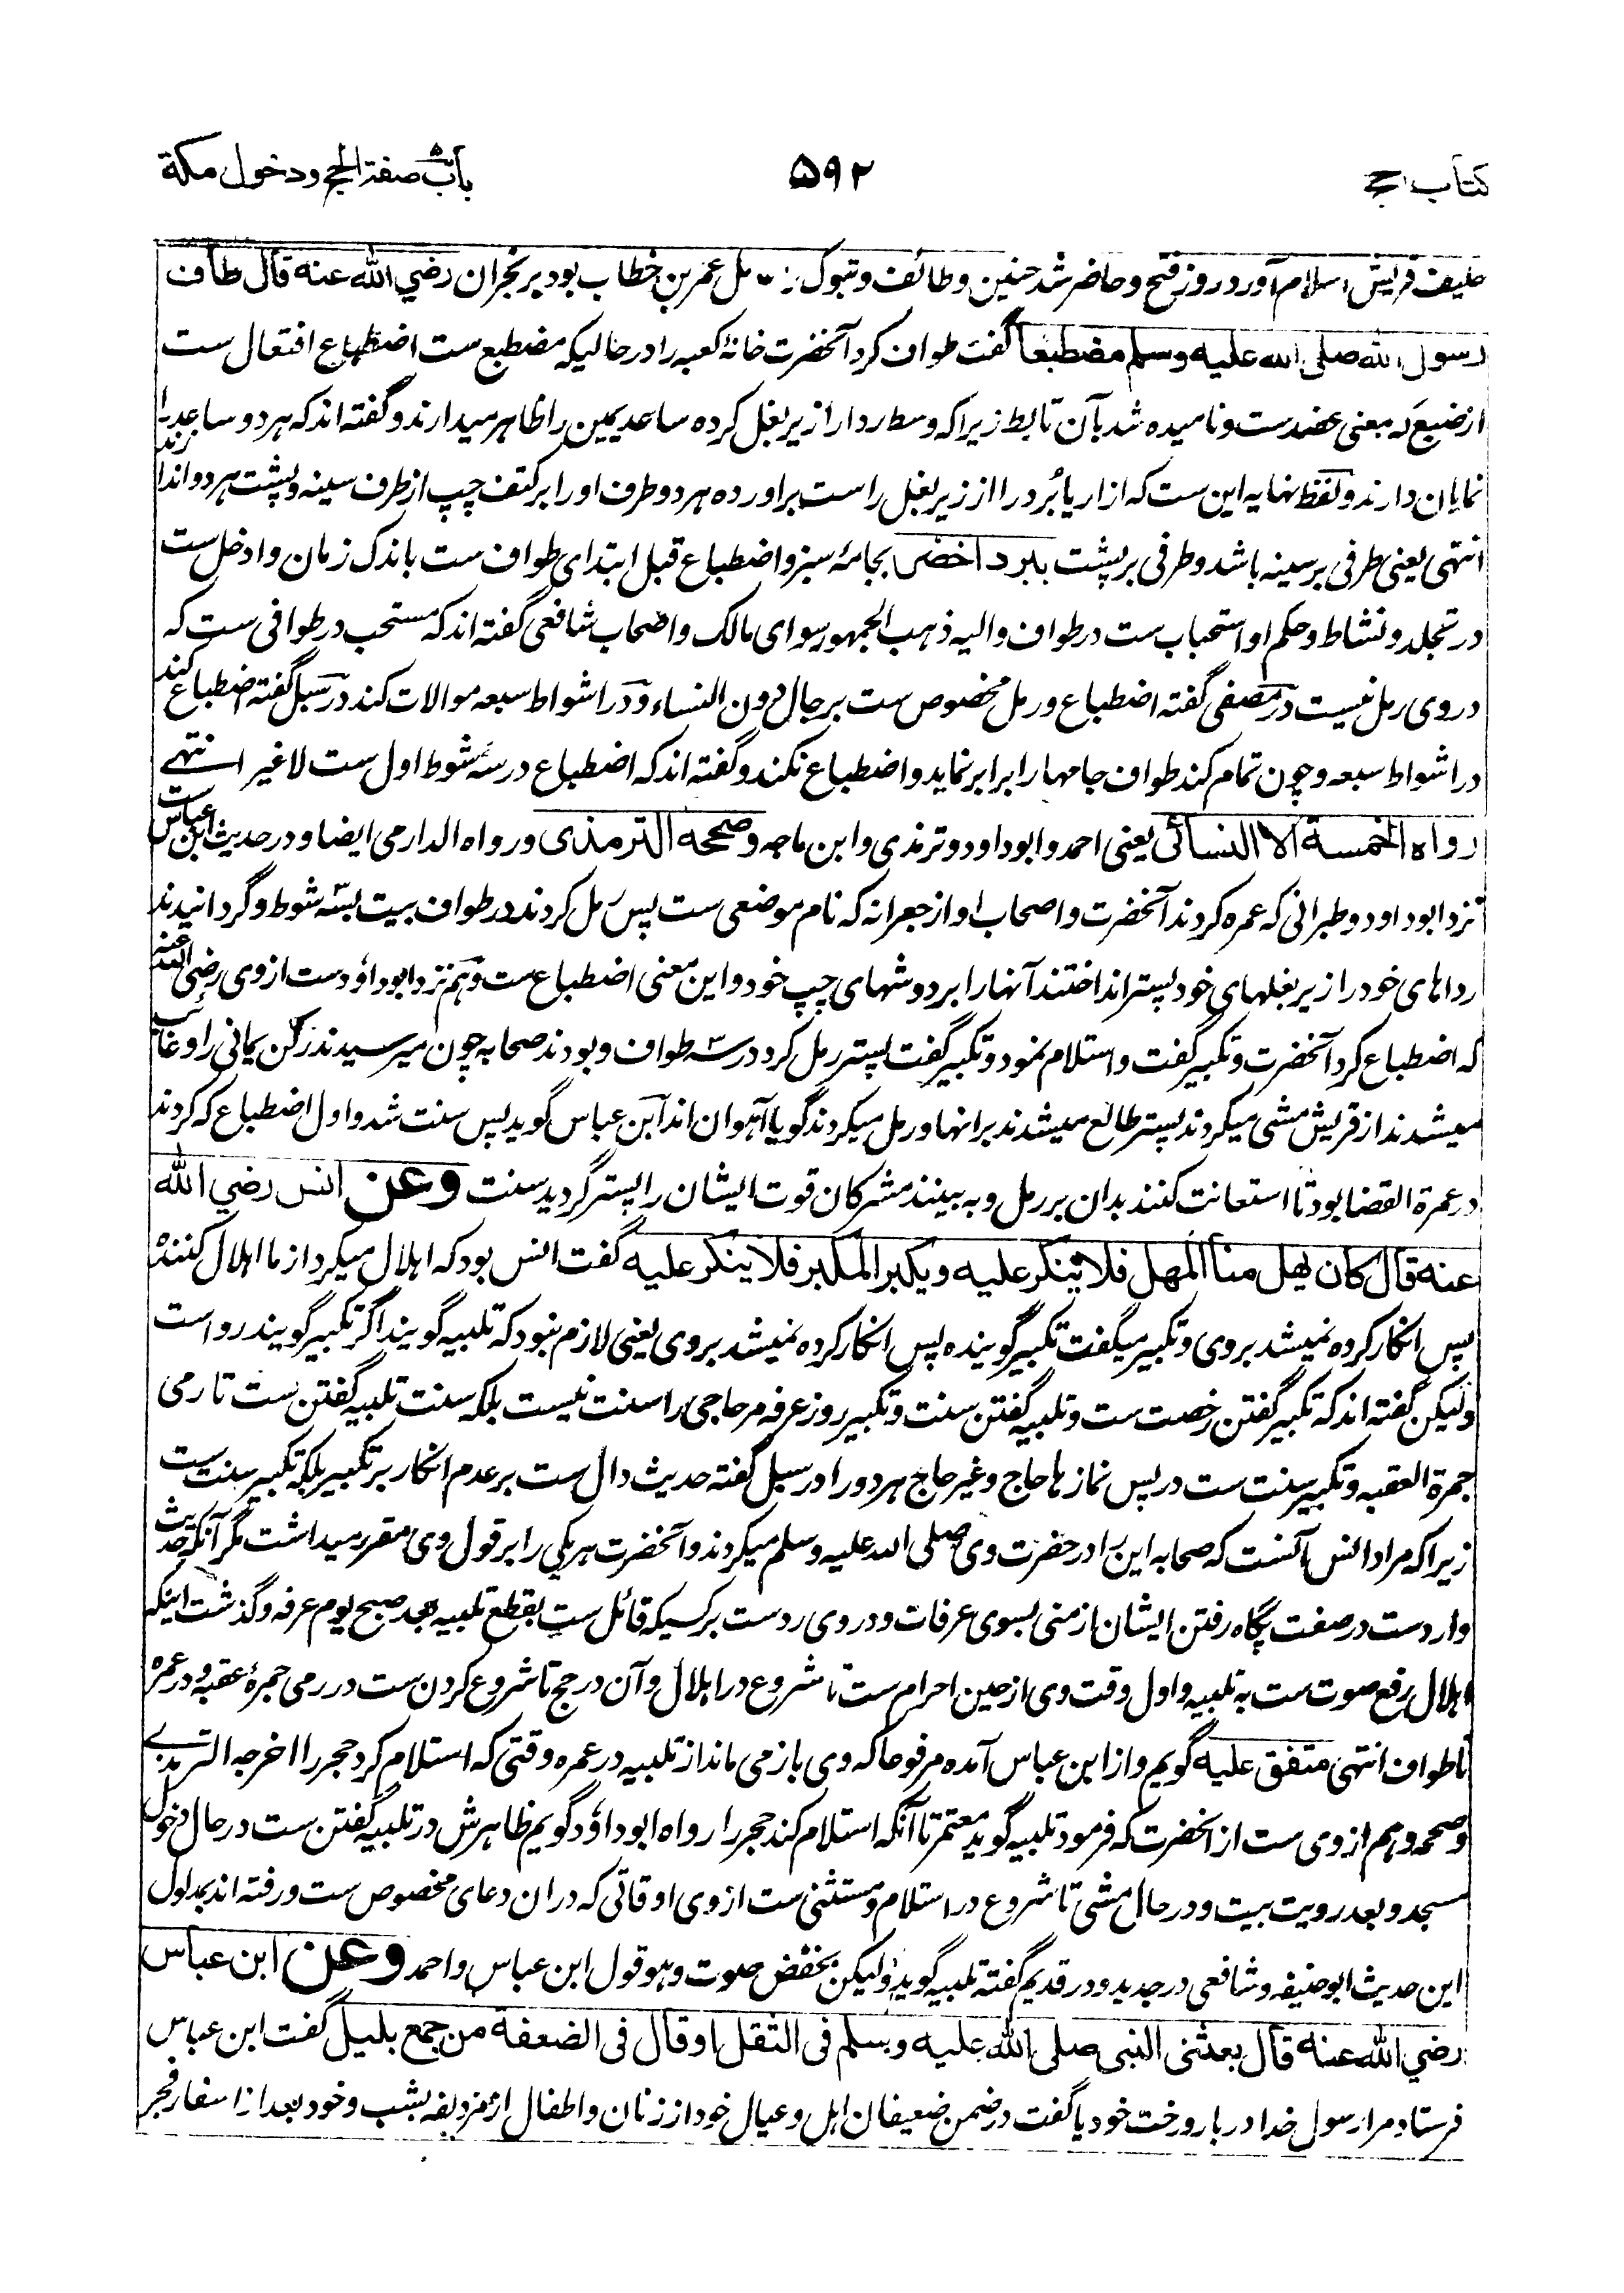 کتاب الحج ۵۹۲ باب صفة الحج ودخول مكة
حلیف قریش اسلام آورد روز فتح و حاضر شد حنین و طائف و تبوک عمر بن خطاب بود بر نجران رضي الله عنه قال طاف
رسول الله صلى الله عليه وسلم مضطبعا گفت طواف کرد آنحضرت خانهٔ کعبه را در حالیکه مضطبع ست اضطباع افتعال ست
از ضبع که بمعنی عضد ست و نامیده شد بآن تابط زیرا که وسط ردا را زیر بغل کرده ساعد یمین را ظاهر میدارند و گفته اند که هر دو ساعد را
نمایان دارند و لفظ نهایه این ست که ازار یا بُرد را از زیر بغل راست براورده هر دو طرف او را بر کتف چپ از طرف سینه و پشت هر دو اندازند
انتهی یعنی طرفی بر سینه باشد و طرفی بر پشت ببرد اخضر بجامهٔ سبز و اضطباع قبل ابتدای طواف ست باندک زمان و ادخل ست
در تجلد و نشاط و حکم او استحباب ست در طواف والیه ذهب الجمهور سوای مالک و اصحاب شافعی گفته اند که مستحب در طوافی ست که
در وی رمل نیست در مصفی گفته اضطباع و رمل مخصوص ست بر جال دون النساء و در اشواط سبعه موالات کند در سبل گفته اضطباع کند
در اشواط سبعه و چون تمام کند طواف جامها را برابر نماید و اضطباع نکند و گفته اند که اضطباع در سه شوط اول ست لا غیر انتهے
رواه الخمسة الا النسائی یعنی احمد و ابوداود و ترمذی و ابن ماجه وصححه الترمذی و رواه الدارمی ایضا و در حدیث ابن عباس ست
نزد ابوداود و طبرانی که عمره کردند آنحضرت و اصحاب او از جعرانه که نام موضعی ست پس رمل کردند در طواف بیت بسه شوط و گردانیدند
رداهای خود را زیر بغلهای خود پستر انداختند آنها را بر دوشهای چپ خود و این معنی اضطباع ست و هم نزد ابوداؤد ست از وی رضی الله عنه
که اضطباع کرد آنحضرت و تکبیر گفت و استلام نمود و تکبیر گفت پستر رمل کرد در سه طواف و بودند صحابه چون میرسیدند رکن یمانی را و غائب
میشدند از قریش مشی میکردند پستر طالع میشدند بر انها و رمل میکردند گویا آهوان اند ابن عباس گوید پس سنت شد و اول اضطباع که کردند
در عمرة القضا بود تا استعانت کنند بدان بر رمل و به بینند مشرکان قوت ایشان را پستر گردید سنت وعن انس رضي الله
عنه قال كان يهل منا المهل فلا ينكر عليه ويكبر المكبر فلا ينكر عليه گفت انس بود که اهلال میکرد از ما اهلال کننده
پس انکار کرده نمیشد بر وی و تکبیر میگفت تکبیر گوینده پس انکار کرده نمیشد بر وی یعنی لازم نبود که تلبیه گویند اگر تکبیر گویند رواست
ولیکن گفته اند که تکبیر گفتن رخصت ست و تلبیه گفتن سنت و تکبیر روز عرفه مر حاجی را سنت نیست بلکه سنت تلبیه گفتن ست تا رمی
جمرة العقبه و تکبیر سنت ست در پس نمازها حاج و غیر حاج هر دو را در سبل گفته حدیث دال ست بر عدم انکار بر تکبیر بلکه تکبیر سنت ست
زیرا که مراد انس آنست که صحابه این را در حضرت وی صلی الله علیه وسلم میکردند و آنحضرت هر یکی را بر قول وی مقرر میداشت مگر آنکه حدیث
وارد ست در صفت پگاه رفتن ایشان از منی بسوی عرفات و در وی رد ست بر کسیکه قائل ست بقطع تلبیه بعد صبح یوم عرفه و گذشت اینکه
اهلال رفع صوت ست به تلبیه و اول وقت وی از حین احرام ست تا شروع در اهلال و آن در حج تا شروع کردن ست در رمی جمرهٔ عقبه و در عمره
تا طواف انتهی متفق عليه گویم و از ابن عباس آمده مرفوعا که وی باز می ماند از تلبیه در عمره وقتی که استلام کرد حجر را اخرجه الترمذی
وصححه و هم از وی ست از آنحضرت که فرمود تلبیه گوید معتمر تا آنکه استلام کند حجر را رواه ابوداؤد گویم ظاهرش در تلبیه گفتن ست در حال دخول
مسجد و بعد رویت بیت و در حال مشی تا شروع در استلام و مستثنی ست از وی اوقاتی که دران دعای مخصوص ست و رفته اند بمدلول
این حدیث ابوحنیفه و شافعی در جدید و در قدیم گفته تلبیه گوید ولیکن بخفض صوت وهو قول ابن عباس و احمد وعن ابن عباس
رضي الله عنه قال بعثنى النبى صلى الله عليه وسلم فى الثقل او قال فى الضعفة من جمع بليل گفت ابن عباس
فرستاد مرا رسول خدا در بار و رخت خود یا گفت در ضمن ضعیفان اهل و عیال خود از زنان و اطفال از مزدلفه بشب و خود بعد از اسفار فجر